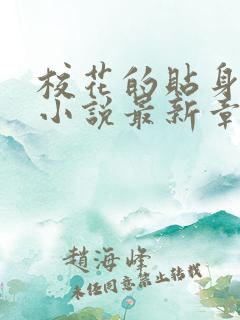 校花的貼身
小說最新章
趙海峰
未經同意禁止轉載